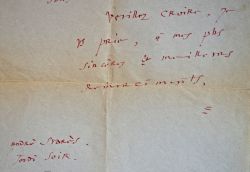 Veuillez croire, je
p prie, à mes plus
sincères et meilleurs
remerciements,
André
Jeudi soir.